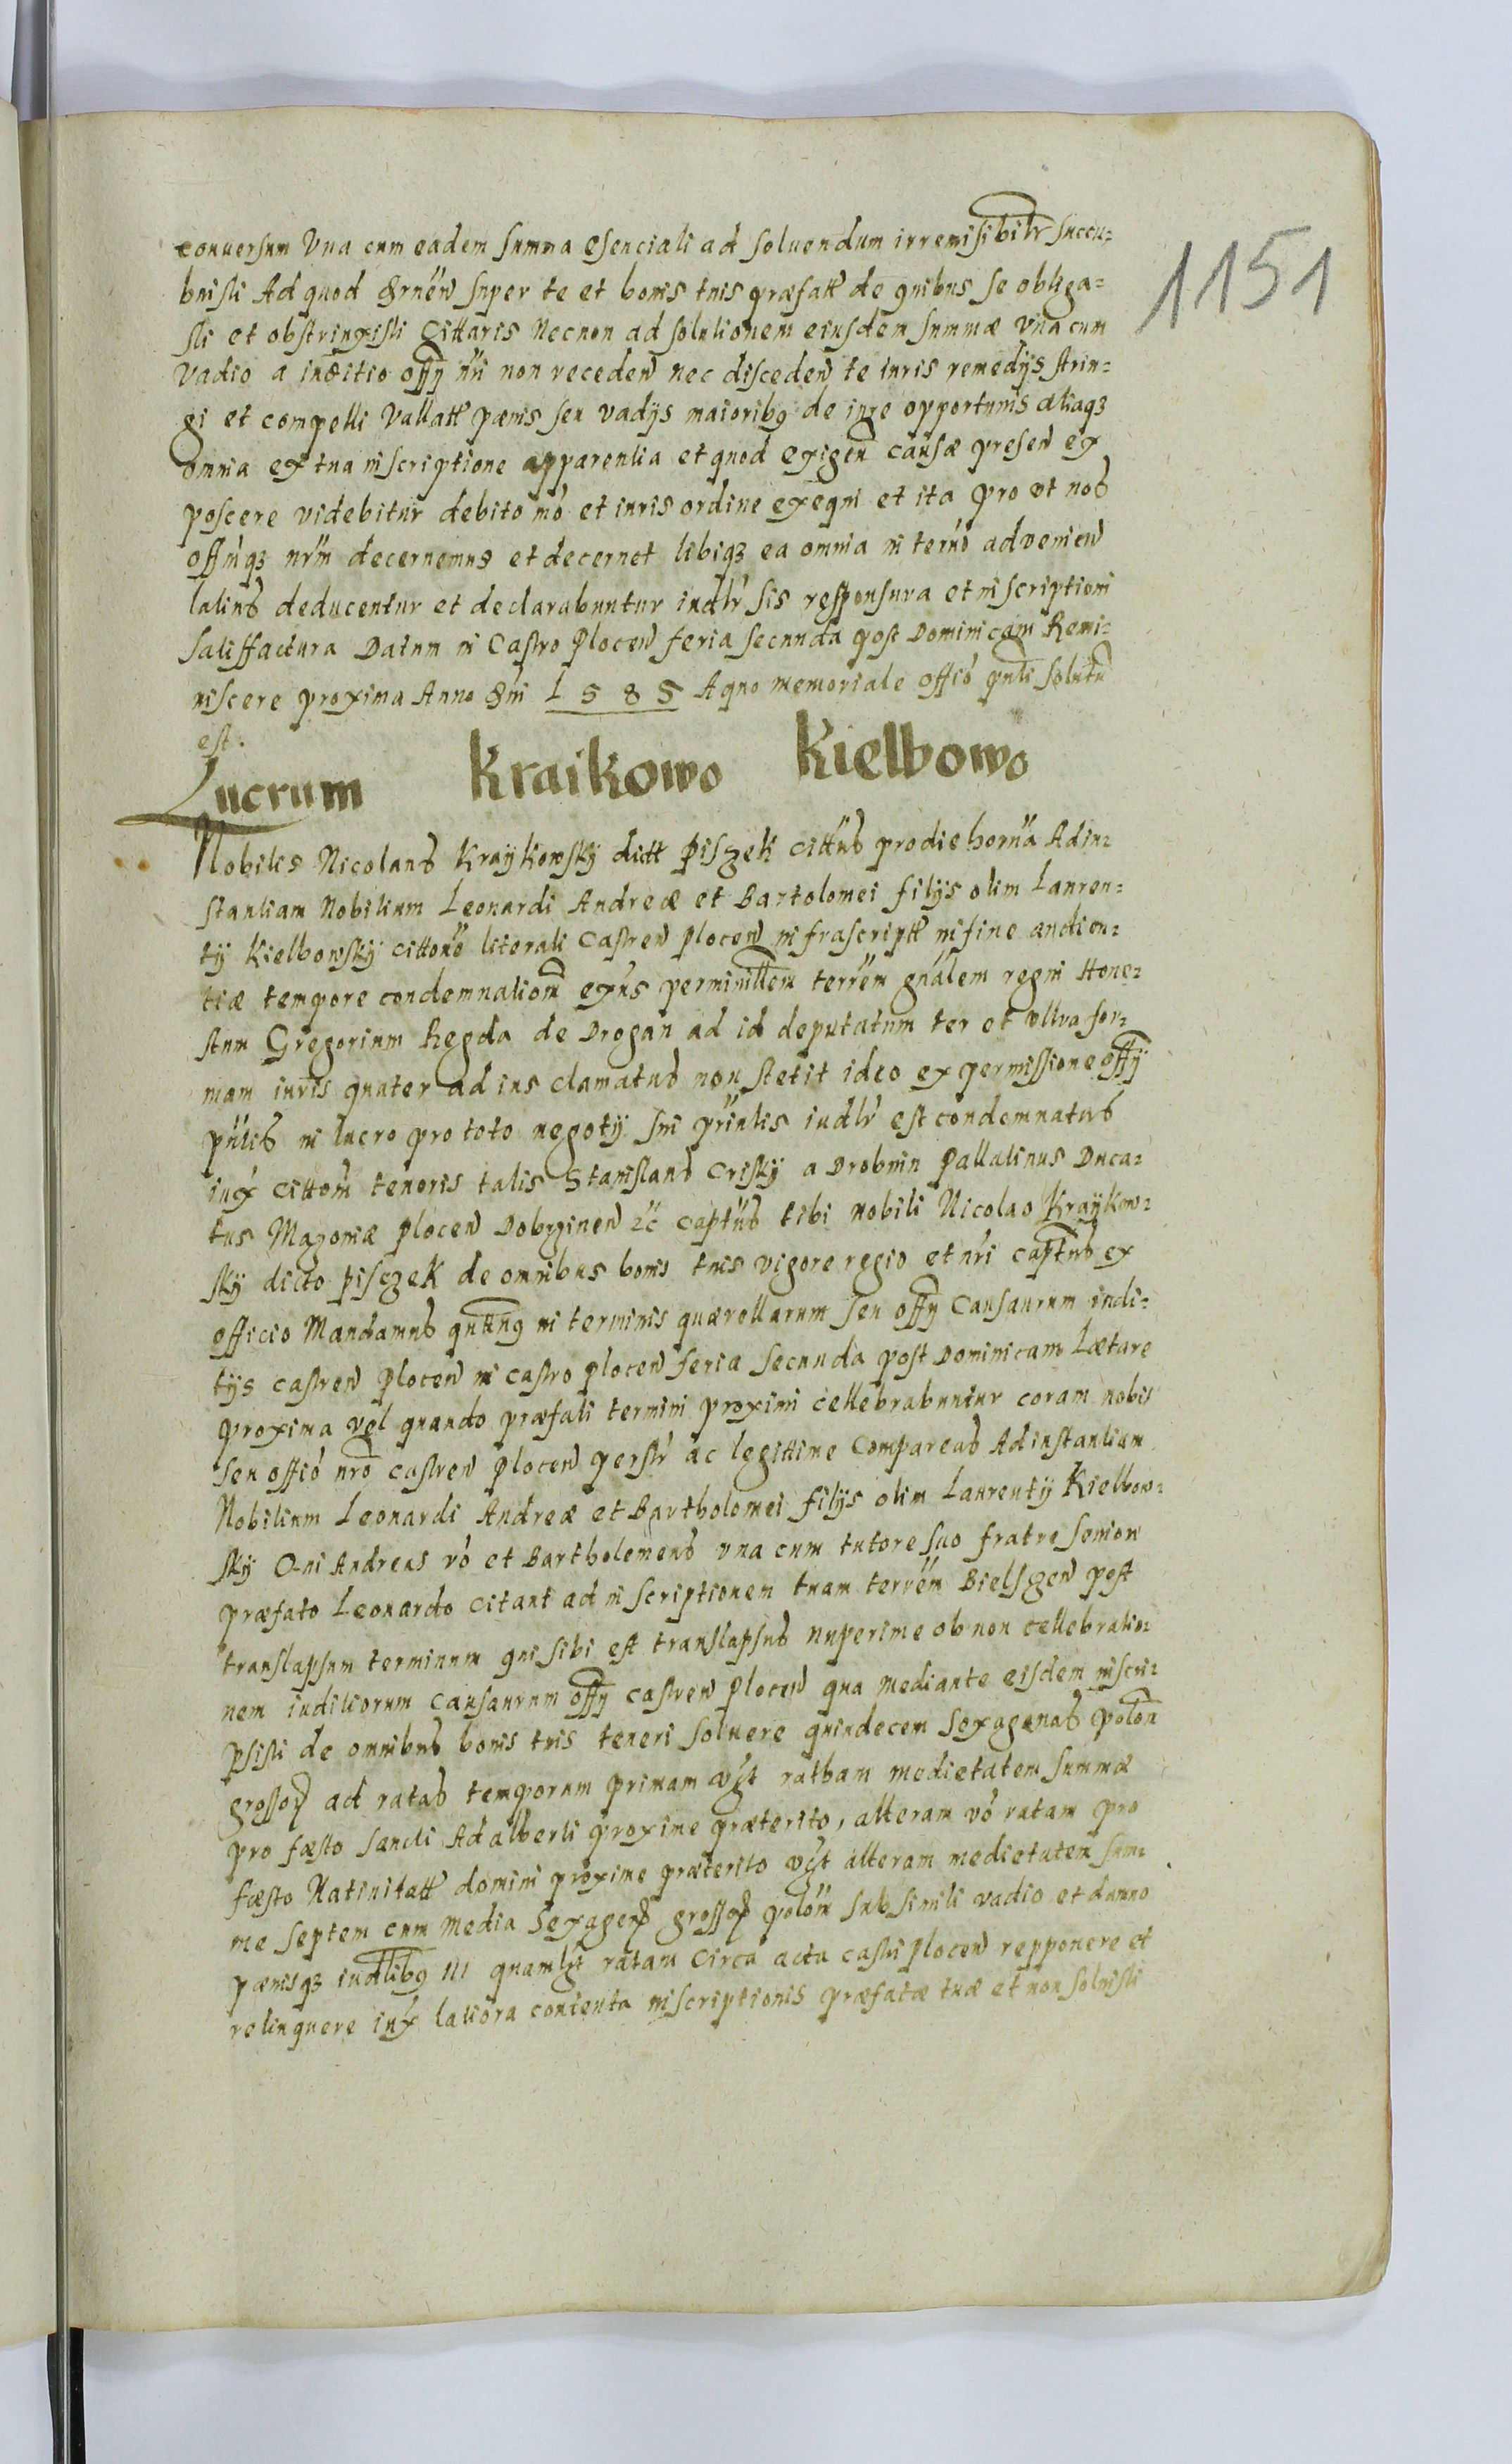 conuersum Vna cum eadem summa esenciali ad soluendum irremisibilr succu-
buisti Ad quod super te et bonis tuis præfatt de quibus se obliga-
sti et obstrinxisti Cittaris Necnon ad solutionem eiusdem summæ vna cum
Vadio a iudicio offy nri non receden nec disceden te iuris remedijs strin-
gi et compelli Vallatt pænis seu vadijs maioribq de iure opportunis aliaqz
omnia ex tua inscriptione apparentia et quod exigen causæ presen ex
poscere videbitur debito mo et iuris ordine exequi et ita pro ut nos
offmqz nrm decernemus et decernet tibiqz ea omnia in termo advenien
latius deducentur et declarabuntur iudlr sis responsura et inscriptioni
satisfactura Datum in Castro Plocen feria secunda post Dominicam Remi-
niscere proxima Anno dni 1585 A quo memoriale offio pnti solutu
est.
Lucrum Kraikowo Kielbowo
Nobilis Nicolaus Kraykowsky dictt Piszek cittus pro die horna Ad in-
stantiam Nobilium Leonardi Andreæ et Bartolomei filijs olim Lauren-
ty Kielbowsky cittone literali Castren Plocen infrascriptt in fine audien-
tiæ tempore condemnationu exns per ministlem terrem gnalem regni Hone-
stum Gregorium Regda de Drogan ad id deputatum ter et vltra for-
mam iuris quater ad ius clamatus non stetit ideo ex permissione offy
pntis in lucro pro toto negoty sui prinlis iudlr est condemnatus
iux cittom tenoris talis Stanislaus Crisky a Drobnin Pallatinus Duca-
tus Mazoniæ Plocen Dobrzinen zc Captus tibi nobili Nicolao Kraykow-
sky dicto Pisczek de omnibus bonis tuis vigore regio et nri captus ex
officio Mandamus qttnuq in terminis quærellarum seu offy Causarum iudi-
tijs castren Plocen in castro Plocen feria secunda post Dominicam Lætare
proxima vel quando præfati termini proximi cellebrabuntur coram nobis
seu offio nro castren Plocen perslr ac legittime Compareas Ad instantiam
Nobilium Leonardi Andreæ et Bartholomei filijs olim Laurenty Kielbow-
sky Qui Andreas vo et Bartholomeus vna cum tutore suo fratre seniore
præfato Leonardo Citant ad inscriptionem tuam terrem Bielszen post
translapsum terminum qui sibi est translapsus nuperime ob non cellebratio-
nem iuditiorum causarum offy castren Plocen qua mediante eisdem inscri-
psisti de omnibus bonis tuis teneri soluere quindecem sexagenas polon
grossor ad ratas temporum primam vzt ratham medietatem summæ
pro fæsto Sancti Adalberti proxime præterito, alteram vo ratam pro
fæsto Natiuitatt domini proxime præterito vzt alteram medietatem sum-
me septem cum media Sexagenr grossor polon sub simili vadio et damno
pænisqz iudlibq in quamlzt ratam Circa acta castri Plocen repponere et
relinquere iux latiora contenta inscriptionis præfatæ tuæ et non soluisti
1151